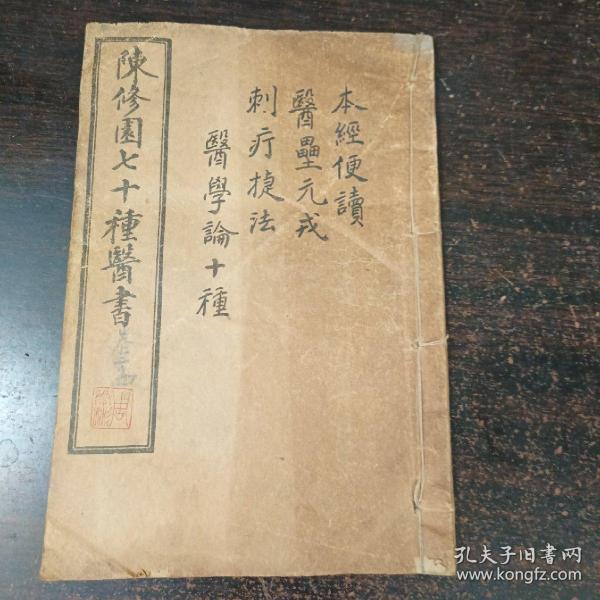 本經便讀
醫壘元戎
刺疔捷法
醫學論十種
陳修園七十種醫書
孔夫子旧书网
www.kongfz.com